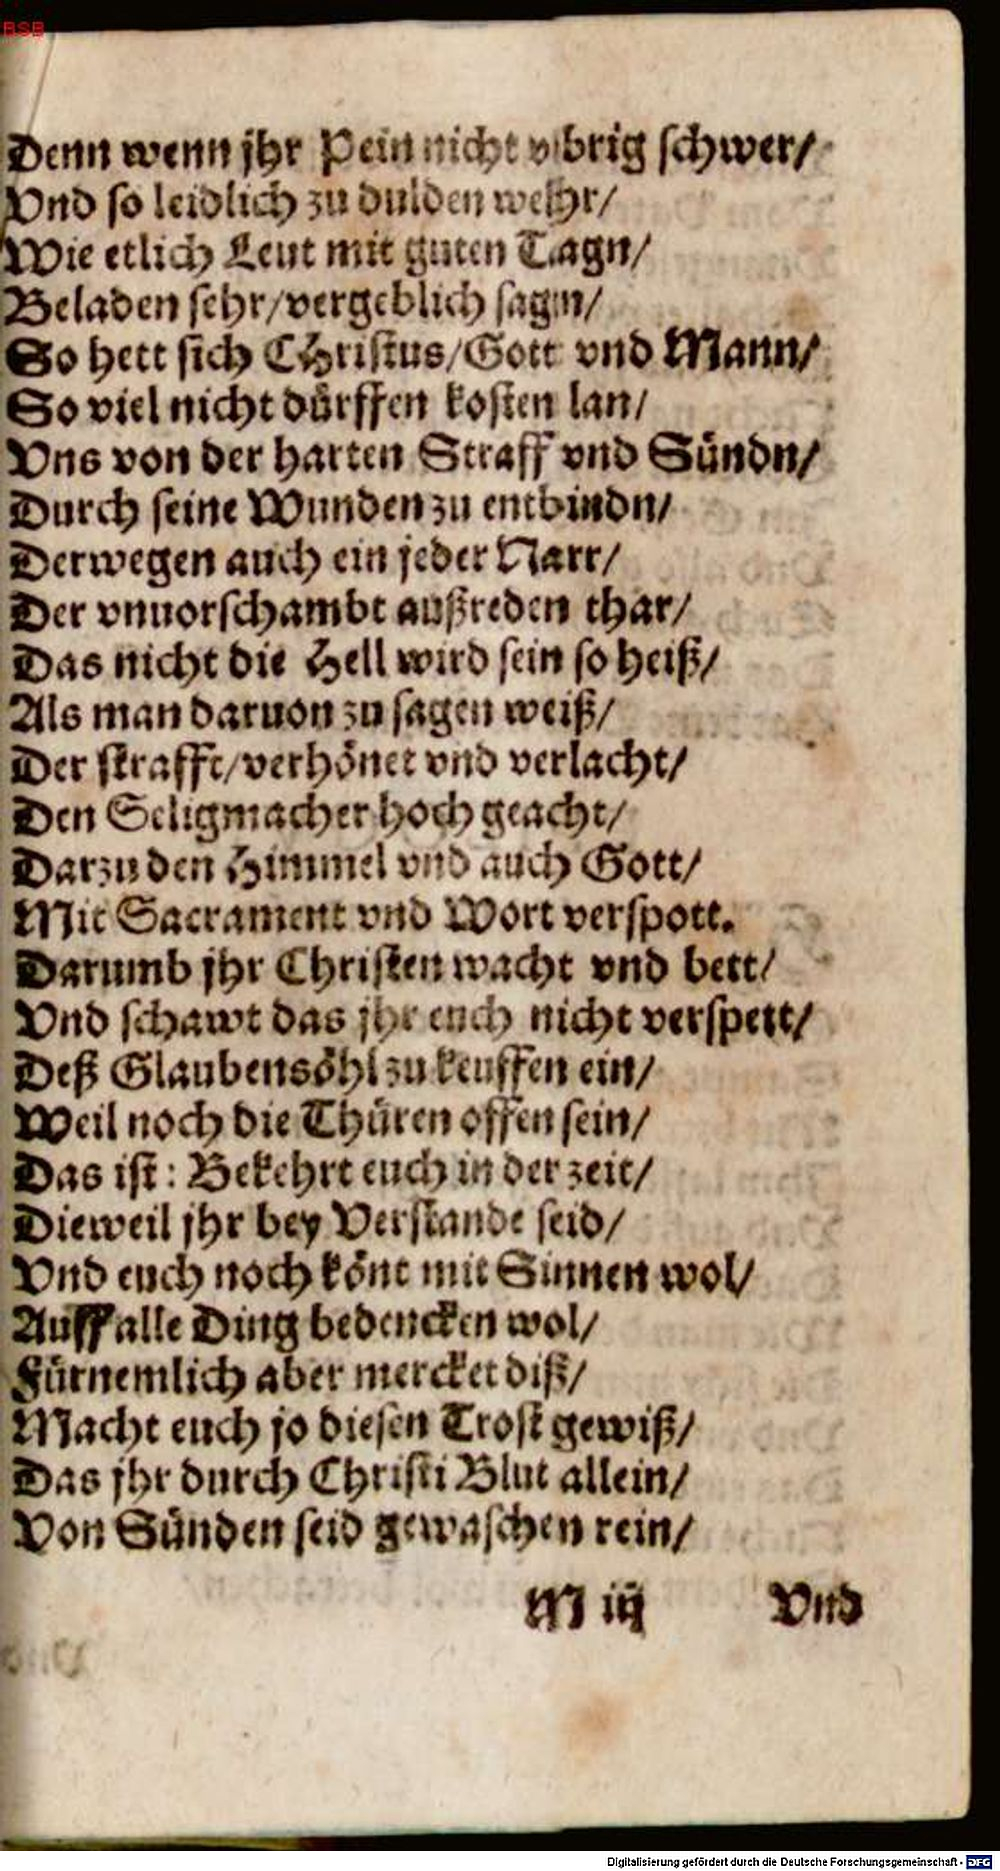 BSB
Denn wenn jhr Pein nicht vbrig schwer/
Vnd so leidlich zu dulden wehr/
Wie etlich Leut mit guten Tagn/
Beladen sehr/vergeblich sagn/
So hett sich CHristus/Gott vnd Mann/
So viel nicht dürffen kosten lan/
Vns von der harten Straff vnd Sündn/
Durch seine Wunden zu entbindn/
Derwegen auch ein jeder Narr/
Der vnuorschambt außreden thar/
Das nicht die Hell wird sein so heiß/
Als man daruon zu sagen weiß/
Der strafft/verhönet vnd verlacht/
Den Seligmacher hoch geacht/
Darzu den Himmel vnd auch Gott/
Mit Sacrament vnd Wort verspott.
Darumb jhr Christen wacht vnd bett/
Vnd schawt das jhr euch nicht verspett/
Deß Glaubensöhl zu keuffen ein/
Weil noch die Thüren offen sein/
Das ist: Bekehrt euch in der zeit/
Dieweil jhr bey Verstande seid/
Vnd euch noch könt mit Sinnen wol/
Auff alle Ding bedencken wol/
Fürnemlich aber mercket diß/
Macht euch jo diesen Trost gewiß/
Das jhr durch Christi Blut allein/
Von Sünden seid gewaschen rein/
M iij Vnd
Digitalisierung gefördert durch die Deutsche Forschungsgemeinschaft - DFG